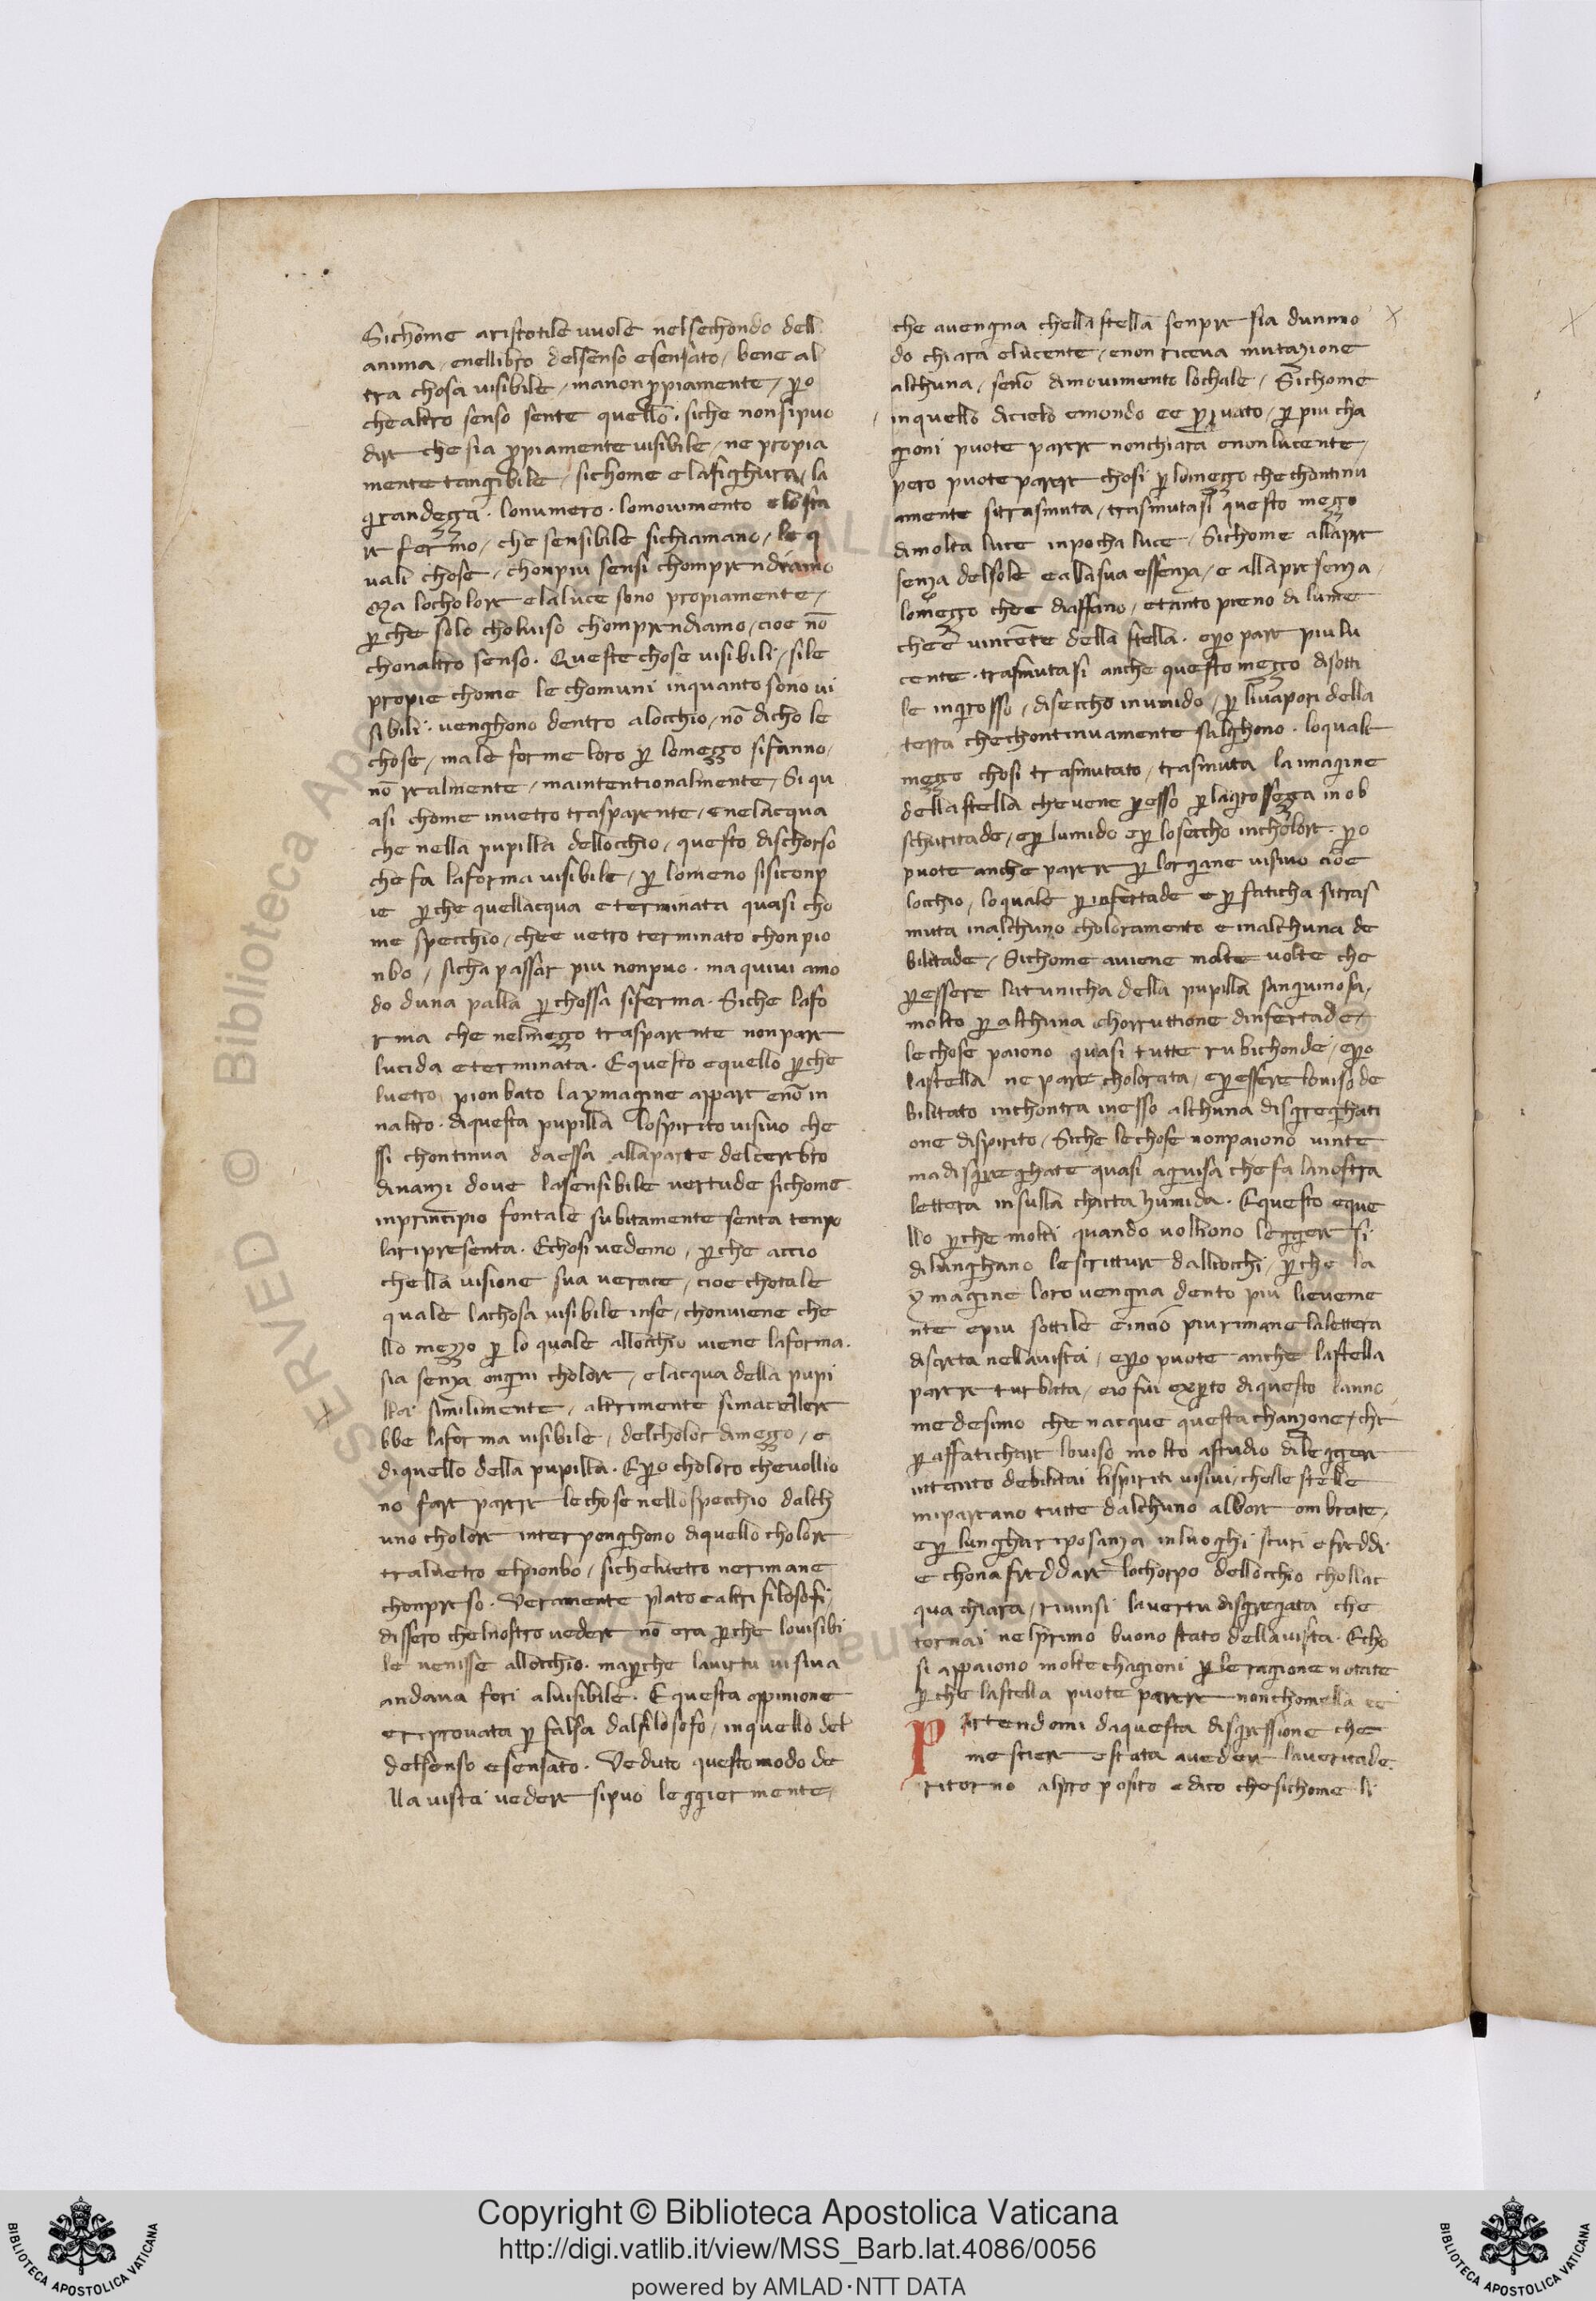 Sichome aristotile vuole nel sechondo dell
anima / enellibro delsenso esensato / bene al
tra chosa visibile / manon ppiamente / po
che altro senso sente quello . siche nonsipuo
dire che sia ppiamente visibile / ne propia
mente tangibile / sichome e lafighura / la
grandezza . lonumero . lomovimento elosta
re fermo / che sensibile sichiamano / le q
uali chose / chonpiu sensi chomprendiamo
Ma locholore elaluce sono propiamente /
pche solo choluiso chomprendiamo / cioe nō
chonaltro senso . Queste chose visibili / sile
propie chome le chomuni inquanto sono ui
sibili . venghono dentro alocchio / nō dicho le
chose / male forme loro p lomezzo sifanno /
nō realmente / maintentionalmente / Si qu
asi chome inuetro trasparente / enelacqua
che nella pupilla dellocchio / questo dischorso
che fa laforma visibile / p lomeno sisiconp
ie pche quellacqua eterminata quasi cho
me specchio / chee uetro terminato chonpio
nbo / sicha passar piu nonpuo . ma quiui amo
do duna palla pchossa siferma . Siche lafo
rma che nelmezzo trasparente nonpare
lucida eterminata . Equesto equello pche
luetro pionbato laymagine appare enō in
naltro . diquesta pupilla lospirito uisiuo che
ssi chontinua daessa allaparte delcerebro
dinanzi doue lasensibile uertude sichome
inprincipio fontale subitamente senta tenpo
laripresenta . Echosi uedemo / pche accio
chella visione sua uerace / cioe chotale
quale lachosa uisibile inse / chonuiene che
llo mezzo p lo quale allocchio uiene laforma .
sia senza ongni cholore / elacqua della pupi
lla similimente / altrimente simacellere
bbe laforma uisibile / delcholor dimezzo / e
diquello della pupilla . Epo choloro cheuollio
no fare parere lechose nellospecchio dalch
uno cholore interponghono diquello cholore
traluetro elpionbo / sicheluetro nerimane
chonpreso . Veramente plato ealtri filosofi /
dissero chelnostro uedere nō era pche louisibi
le uenisse allocchio . mapche lauirtu uisiua
andaua fori aluisibile . E questa oppinione
eriprouata p falsa dalfilosofo / inquello del
delsenso esensato . Veduto questo modo de
lla uista uedere sipuo leggiermente /
che auengna chella stella senpre sia dunmo
do chiara elucente / enon riceua mutazione
alchuna / senō dimouimento lochale / Sichome
inquello dicielo emondo ee prouato / p piu cha
gioni puote parere nonchiara enonlucente /
pero puote parere chosi p lomezzo che chontinu
amente sitrasmuta / trasmutasi questo mezzo
dimolta luce inpocha luce / Sichome allapre
senza delsole eallasua essenza / e allapresenza /
lomezzo chee diaffano / etanto pieno di lume
cheē uincēte della stella . epo pare piu lu
cente . trasmutasi anche questo mezzo disotti
le ingrosso / disecchō inumido / p liuapori della
terra chechontinuamente salghono . loquale
mezzo chosi trasmutato / trasmuta la imagine
della stella cheuene pesso p lagrossezza in ob
schuritade / ep lumido ep losecho incholore . po
puote anche parere p lorgane uisiuo cioe
locchio / lo quale p infertade e p faticha sitras
muta inalchuno choloramento e inalchuna de
bilitade / Sichome auiene molte uolte che
pessere latunicha della pupilla sanguinosa /
molto p alchuna chorruttione dinfertade /
lechose paiono quasi tutte rubichonde / epo
lastella ne pare cholorata / epessere louiso de
bilitato inchontra inesso alchuna disgreghati
one dispirito / Siche lechose nonpaiono uinte
ma disgreghate quasi aguisa che fa lanostra
lettera insulla charta humida . Equesto eque
llo pche molti quando uolliono leggere si
dilunghano lescritture dalliocchi / pche la
ymagine loro uengna dento piu lieueme
nte epiu sottile eincio piurimane lalettera
discreta nellauista / epo puote anche lastella
parere turbata / eio fui expto diquesto lanno
medesimo che nacque questa chanzone / che
p affatichare louiso molto astudio di leggere
intanto debilitai lispiriti uisiui / chelle stelle
mipareano tutte dalchuno albore ombrate .
ep lungha riposanza inluoghi scuri efreddi
e chonafreddare lochorpo dellocchio chollac
qua chiara / riuinsi lauertu disgregata che
tornai nelprimo buono stato dellauista . Echo
si appaiono molte chagioni p le ragione notate
pche lastella puote parere nonchomella ee
Partendomi daquesta disgressione che
mestiere estata auedere laueritade .
ritorno alproposito edico chesichome li
Copyright © Biblioteca Apostolica Vaticana
http://digi.vatlib.it/view/MSS_Barb.lat.4086/0056
powered by AMLAD·NTT DATA
BIBLIOTECA APOSTOLICA VATICANA
BIBLIOTECA APOSTOLICA VATICANA